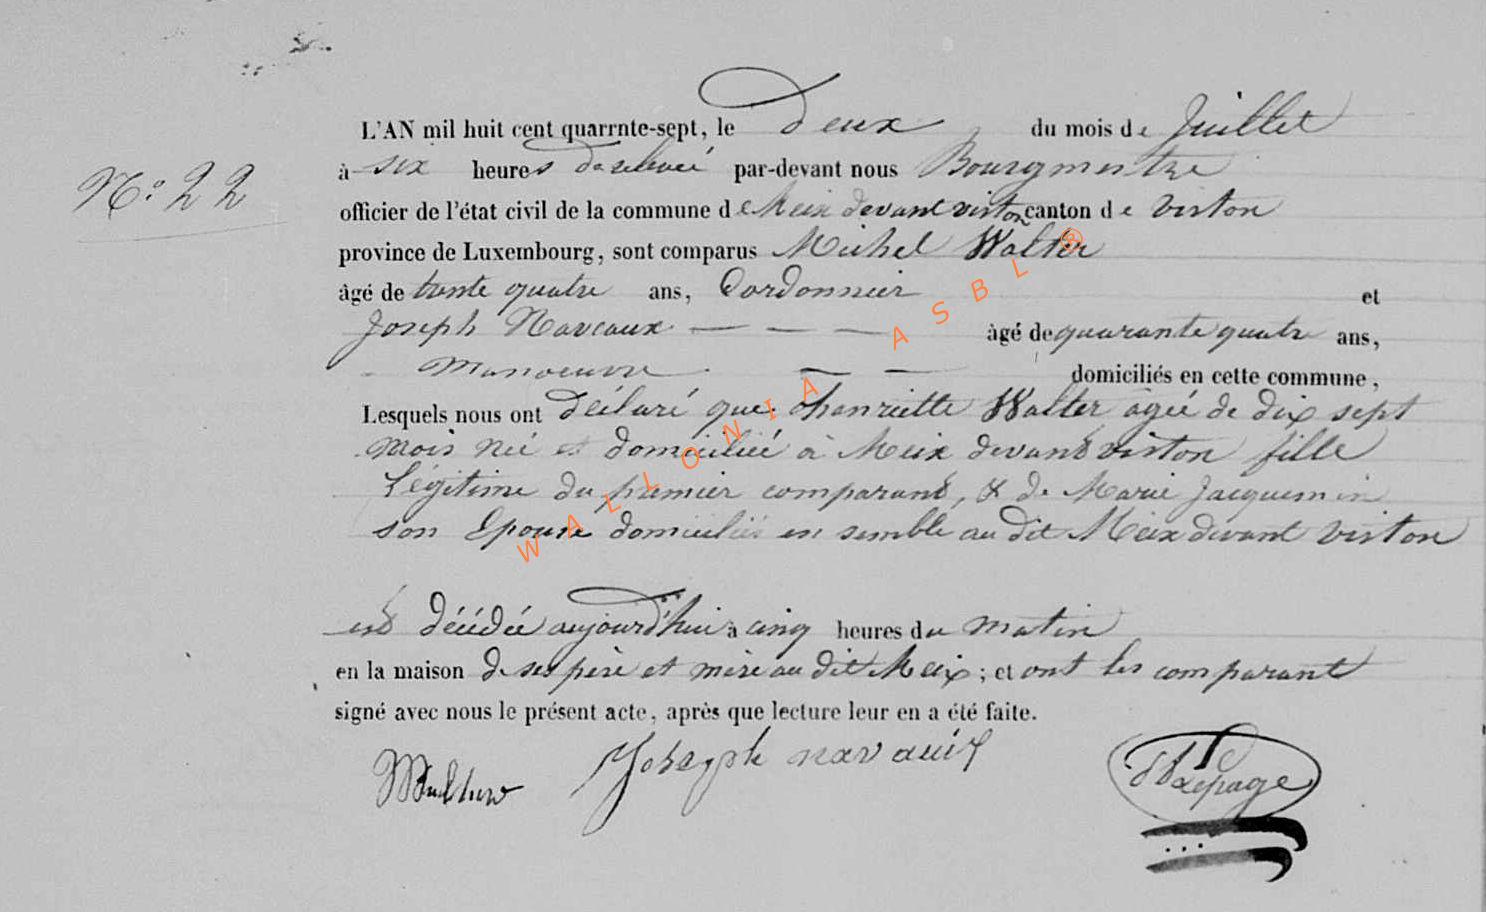 L'AN mil huit cent quarrnte-sept, le Deux du mois de Juillet
N.° 22
à six heures par-devant nous Bourgmestre
officier de l'état civil de la commune de Meix devant virton canton de virton
province de Luxembourg, sont comparus Michel Walter
âgé de trente quatre ans, Cordonnier et
Joseph Naveaux âgé de quarante quatre ans,
Manoeuvre domiciliés en cette commune,
Lesquels nous ont déclaré que henriette Walter agée de dix sept
mois né et domiciliée à Meix devant virton fille
Légitime du premier comparant, & de Marie Jacquemin
son Epouse domiciliés en semble au dit Meix devant virton
est décédée aujourd'hui à cinq heures du matin
en la maison de ses père et mère au dit Meix; et ont les comparant
signé avec nous le présent acte, après que lecture leur en a été faite.
Joseph navauix
Lepage
WALLONIA ASBL ®